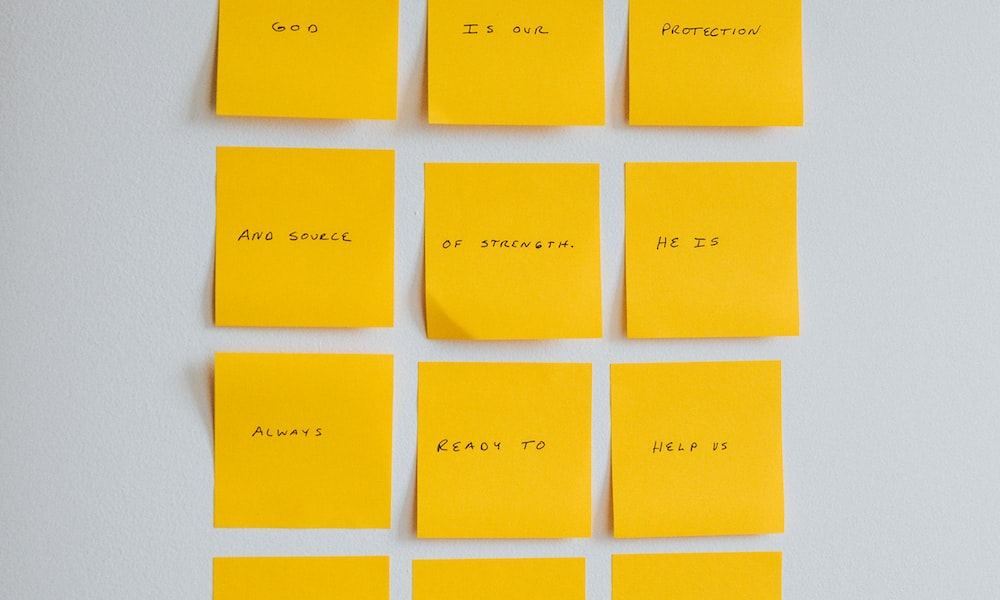 GOD IS OUR PROTECTION
AND SOURCE OF STRENGTH. HE IS
ALWAYS READY TO HELP US